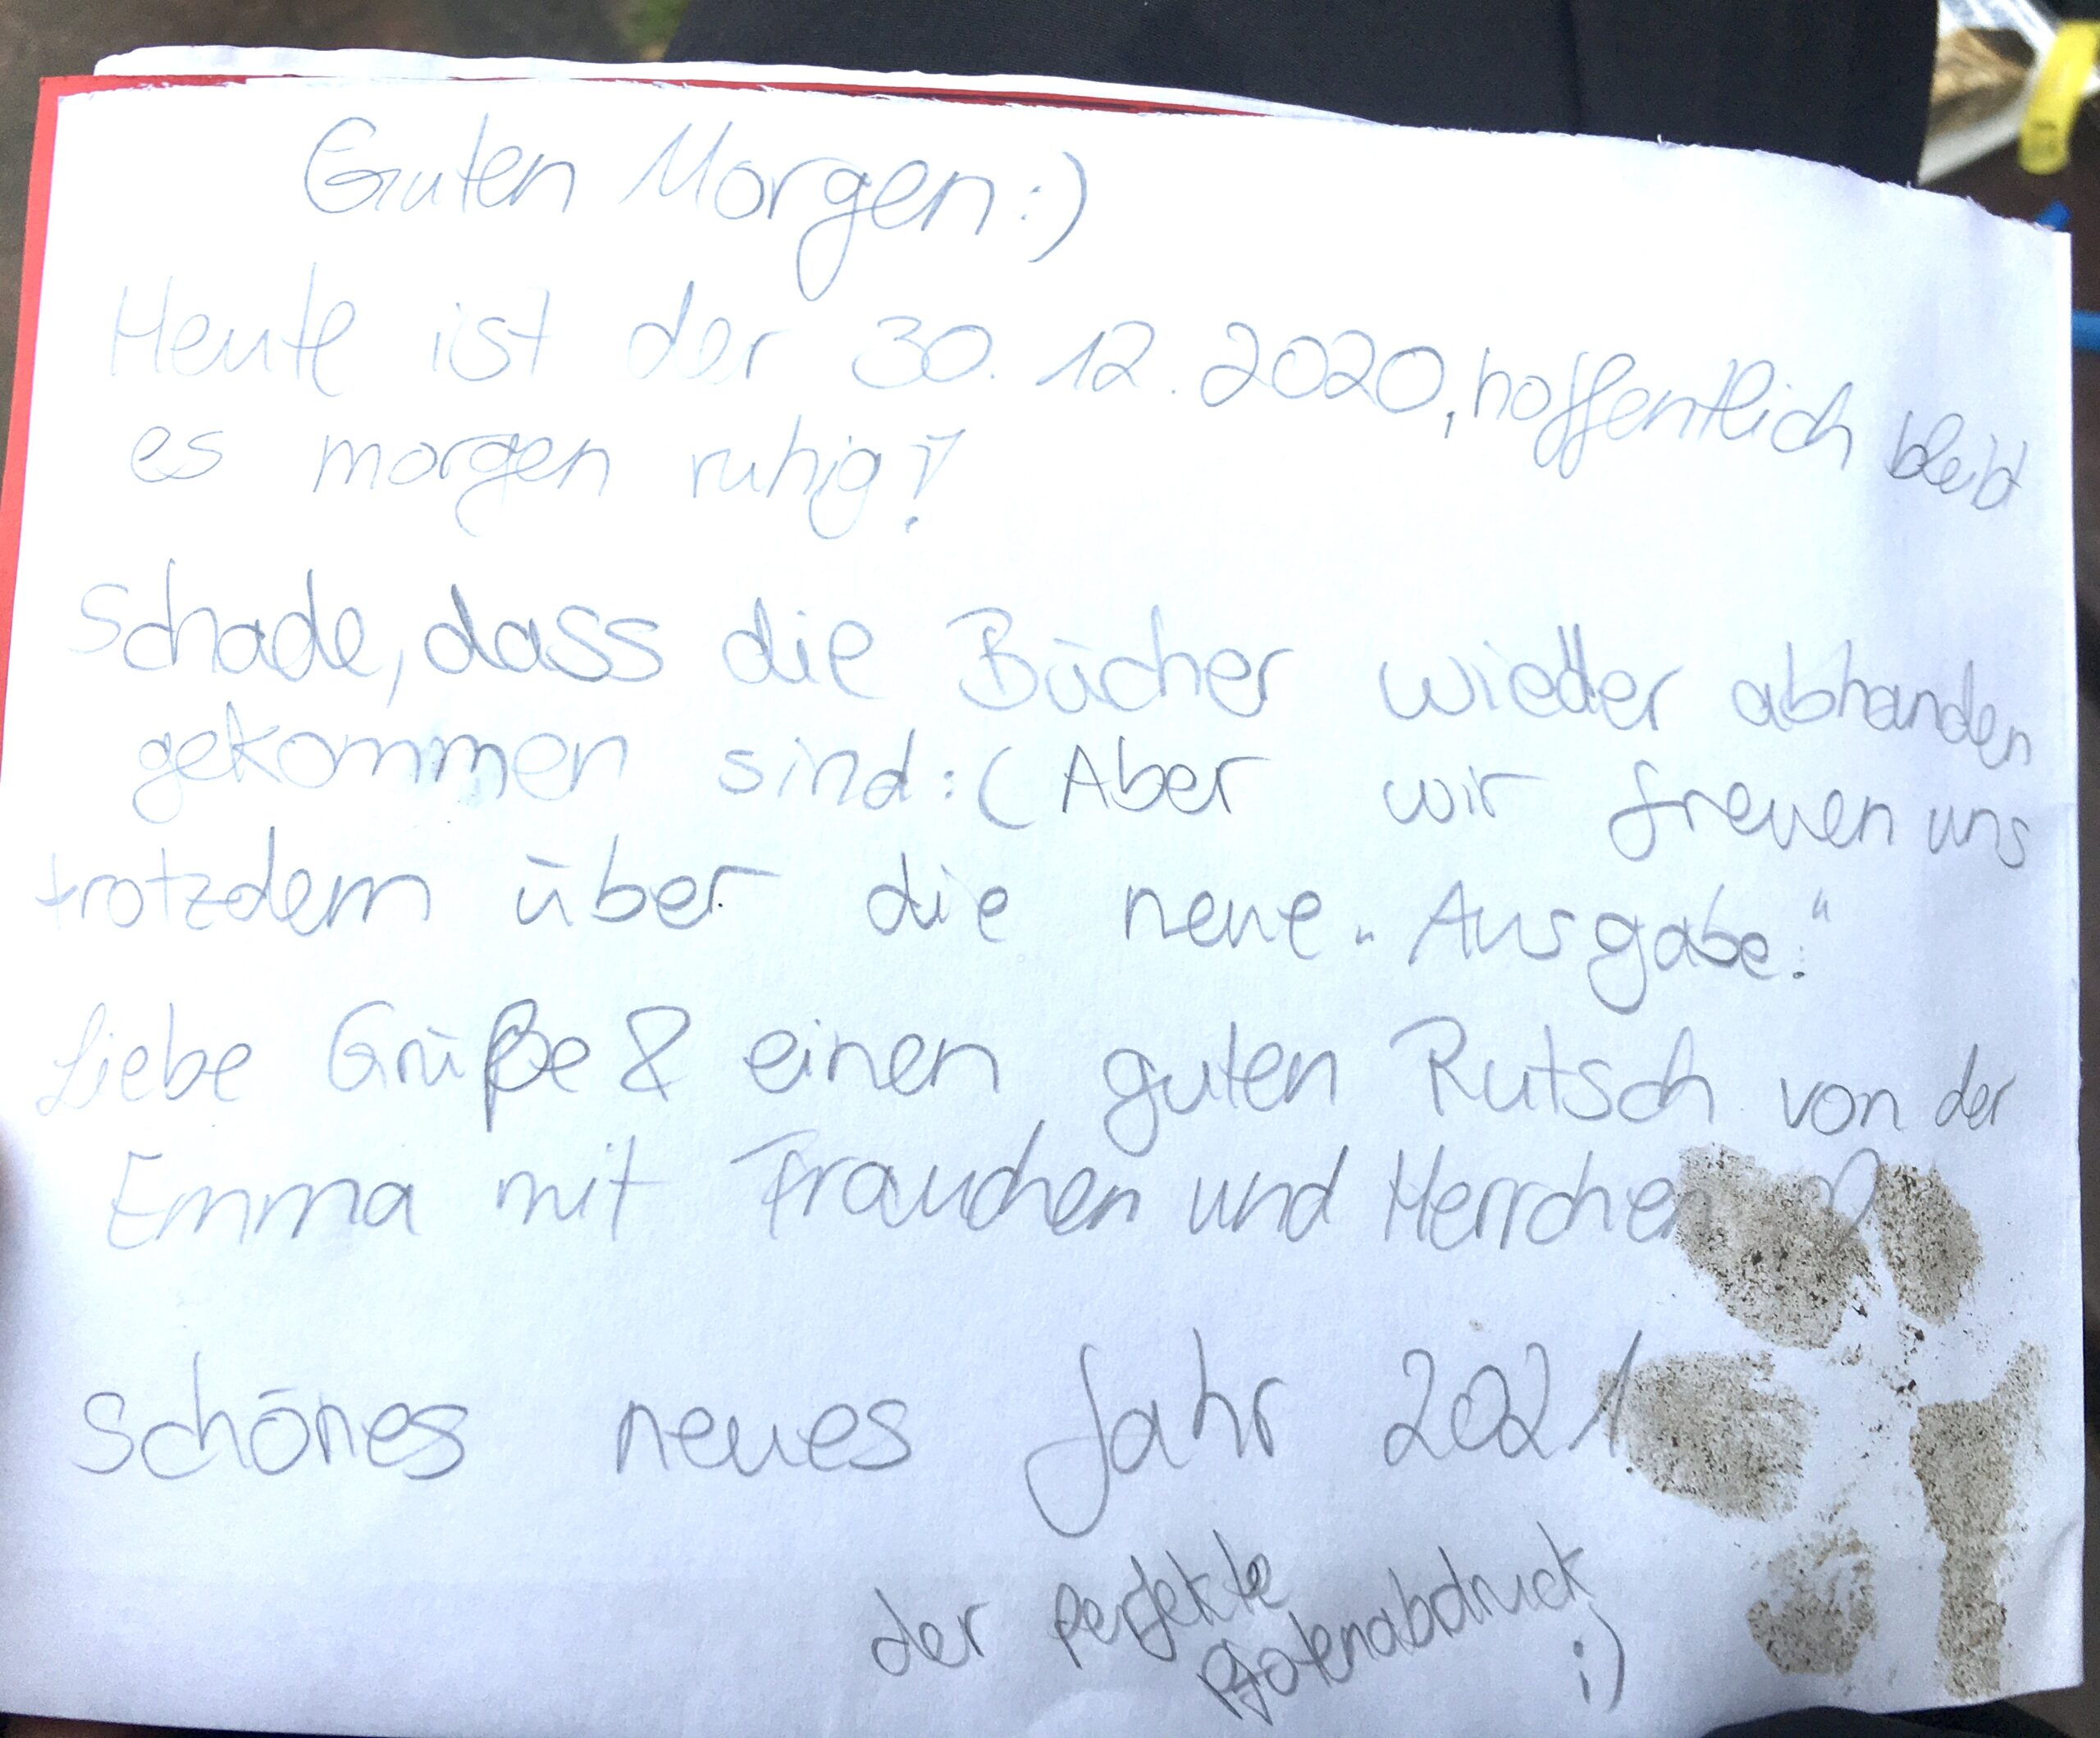 Guten Morgen :)
Heute ist der 30.12.2020, hoffentlich bleibt
es morgen ruhig!
Schade, dass die Bücher wieder abhanden
gekommen sind :( Aber wir freuen uns
trotzdem über die neue „Ausgabe."
Liebe Grüße & einen guten Rutsch von der
Emma mit Frauchen und Herrchen
Schönes neues Jahr 2021
der perfekte
Pfotenabdruck
;)